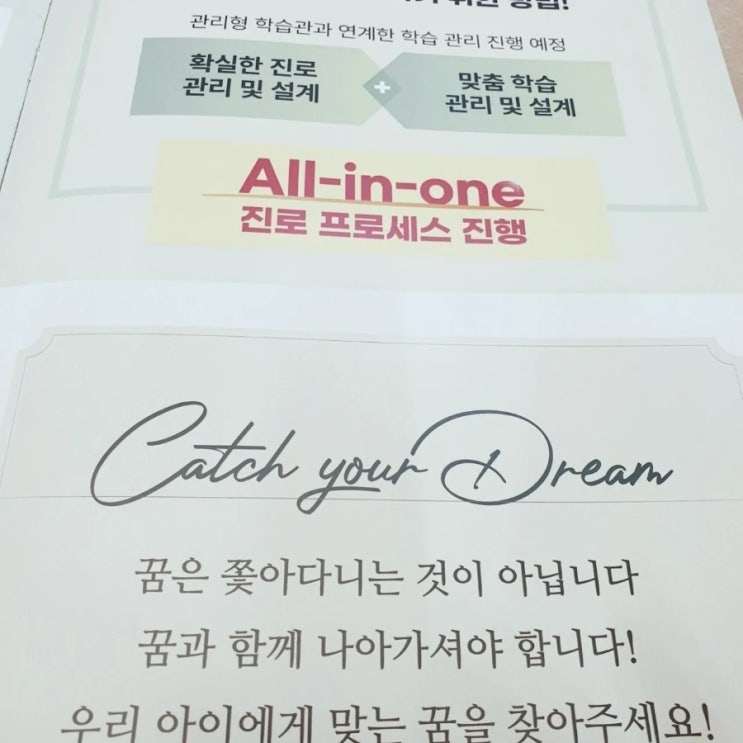 위한 방법!
관리형 학습관과 연계한 학습 관리 진행 예정
확실한 진로
관리 및 설계
+
맞춤 학습
관리 및 설계
All-in-one
진로 프로세스 진행
Catch your Dream
꿈은 쫓아다니는 것이 아닙니다
꿈과 함께 나아가셔야 합니다!
우리 아이에게 맞는 꿈을 찾아주세요!